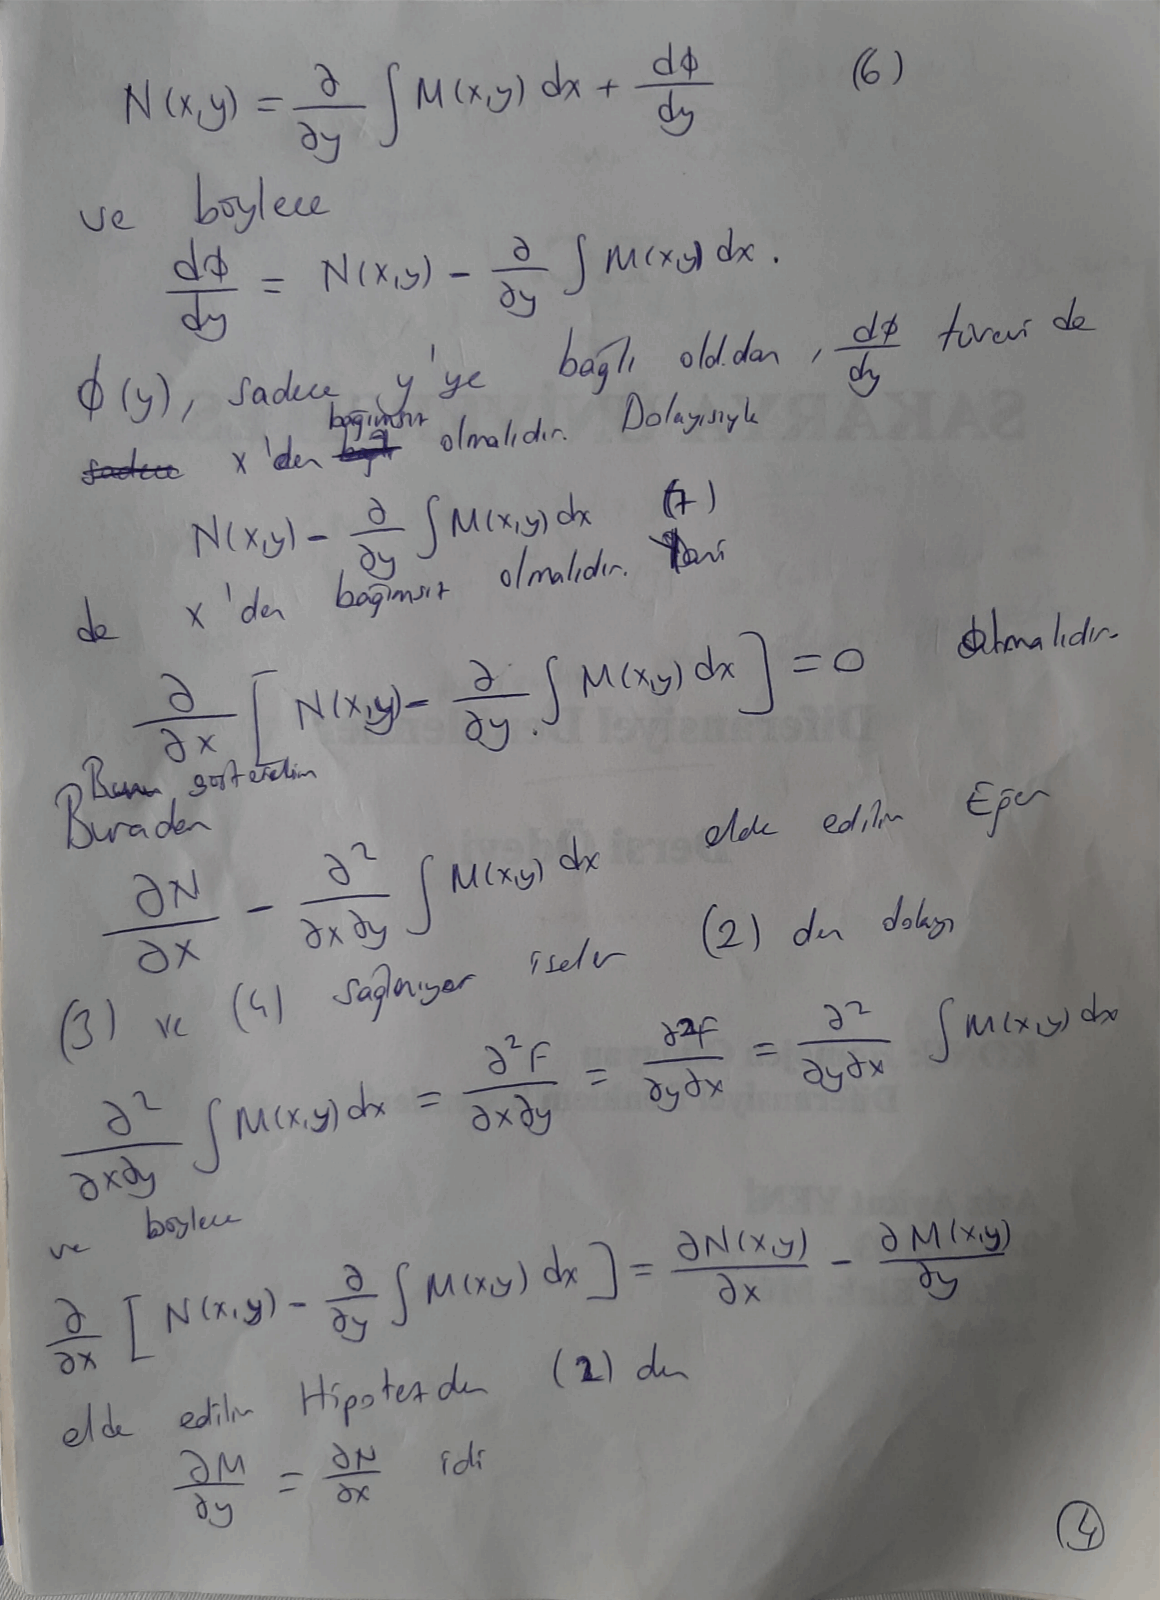 N(x,y) = ∂/∂y ∫ M(x,y) dx + dϕ/dy (6)
ve böylece
dϕ/dy = N(x,y) - ∂/∂y ∫ M(x,y) dx.
ϕ(y), sadece y'ye bağlı old.dan, dϕ/dy türevi de
sadece x'den bağımsız olmalıdır. Dolayısıyla
N(x,y) - ∂/∂y ∫ M(x,y) dx (7)
de x'den bağımsız olmalıdır. Yani
∂/∂x [ N(x,y) - ∂/∂y ∫ M(x,y) dx ] = 0 olmalıdır.
Bunu gösterelim
Buradan
∂N/∂x - ∂²/∂x∂y ∫ M(x,y) dx elde edilir Eğer
(3) ve (4) sağlanıyor iseler (2) den dolayı
∂²/∂x∂y ∫ M(x,y) dx = ∂²F/∂x∂y = ∂²F/∂y∂x = ∂²/∂y∂x ∫ M(x,y) dx
ve böylece
∂/∂x [ N(x,y) - ∂/∂y ∫ M(x,y) dx ] = ∂N(x,y)/∂x - ∂M(x,y)/∂y
elde edilir Hipotezden (2) den
∂M/∂y = ∂N/∂x idi
4
SAKARYA
Diferansiyel
Dersi Ödevi